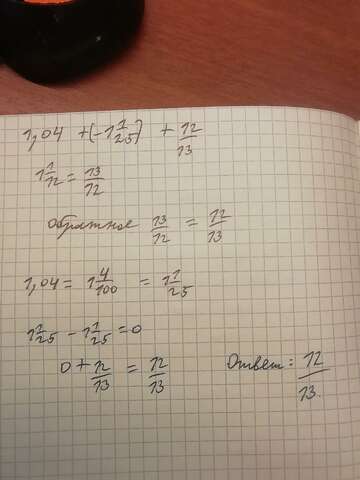 1,04 + (-1 1/25) + 12/13
1 1/12 = 13/12
обратное 13/12 = 12/13
1,04 = 1 4/100 = 1 1/25
1 1/25 - 1 1/25 = 0
0 + 12/13 = 12/13
Ответ: 12/13